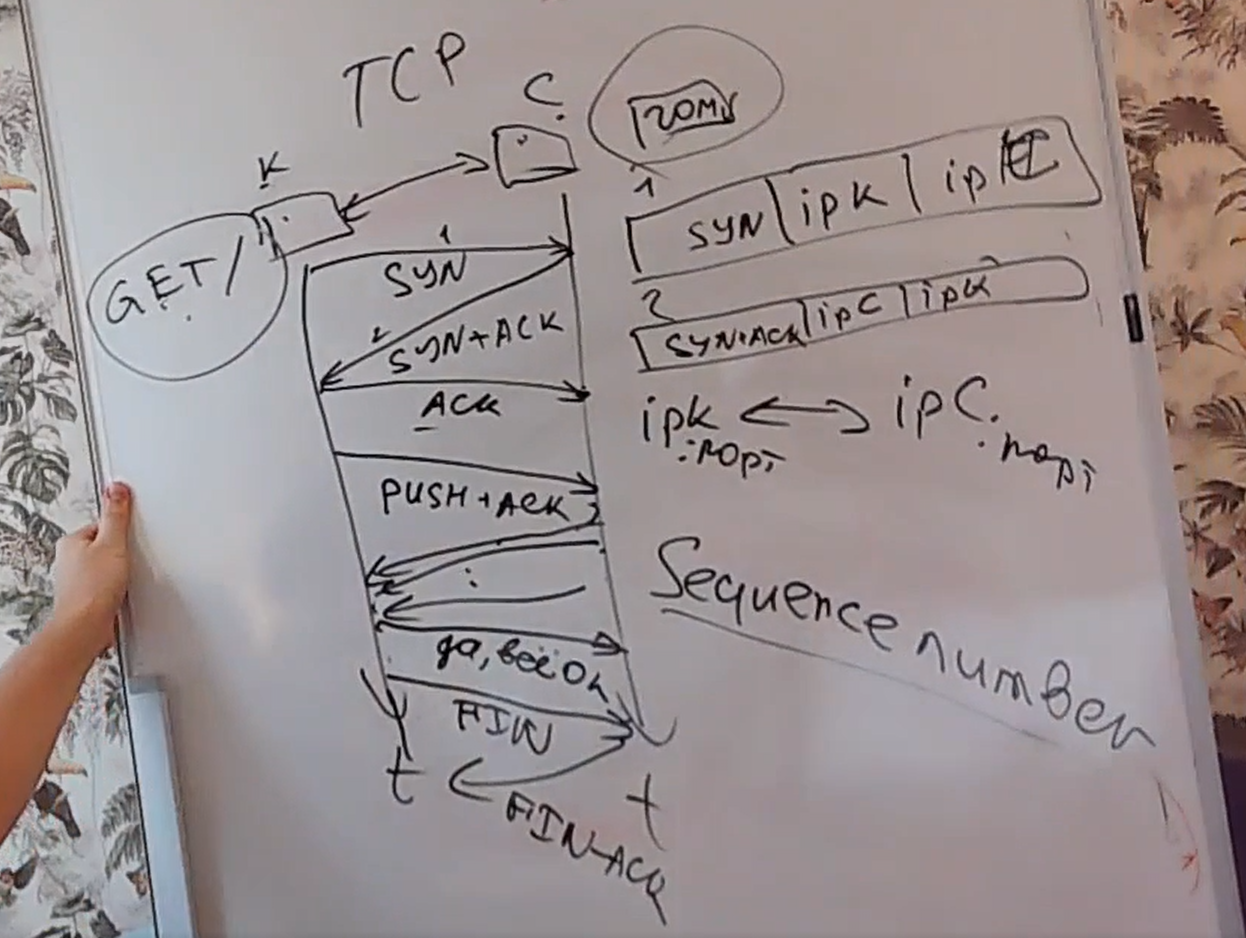 TCP
C
K
GET /
1
SYN
2
SYN+ACK
ACK
PUSH+ACK
да, всё ок
FIN
t
t
FIN-ACK
1
SYN | ipк | ip
2
SYN+ACK | ipC | ipк
ipк ↔ ipC
:порт
:порт
Sequence number